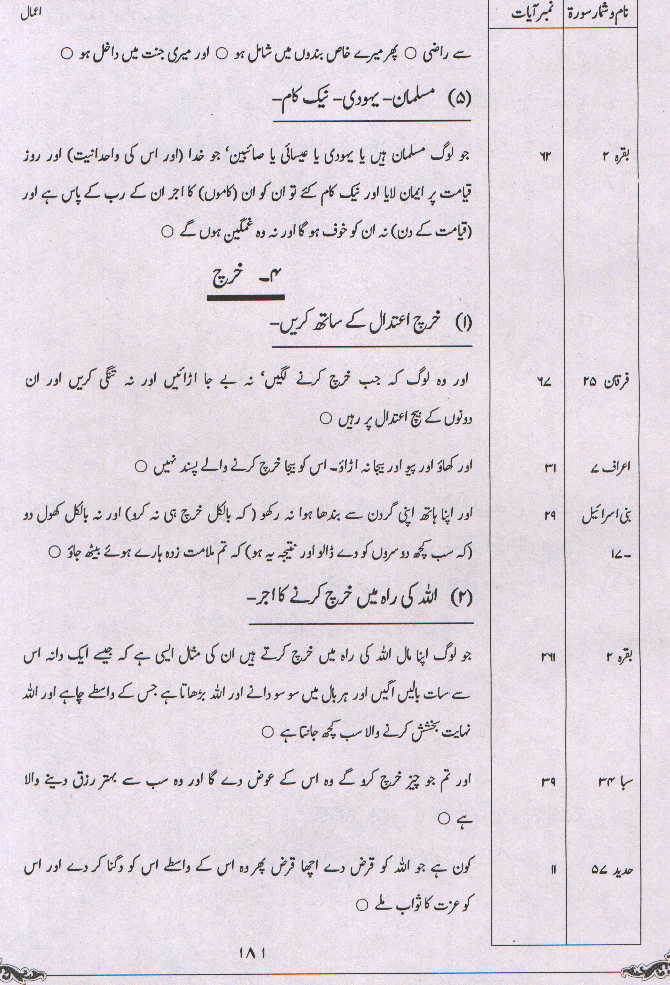 نام و شمار سورۃ نمبر آیات اعمال
سے راضی ○ پھر میرے خاص بندوں میں شامل ہو ○ اور میری جنت میں داخل ہو ○
(۵) مسلمان- یہودی- نیک کام-
بقرہ ۲ ۶۲ جو لوگ مسلمان ہیں یا یہودی یا عیسائی یا صائبین‘ جو خدا (اور اس کی واحدانیت) اور روز
قیامت پر ایمان لایا اور نیک کام کئے تو ان کو ان (کاموں) کا اجر ان کے رب کے پاس ہے اور
(قیامت کے دن) نہ ان کو خوف ہو گا اور نہ وہ غمگین ہوں گے ○
۴۔ خرچ
(۱) خرچ اعتدال کے ساتھ کریں-
فرقان ۲۵ ۶۷ اور وہ لوگ کہ جب خرچ کرنے لگیں‘ نہ بے جا اڑائیں اور نہ تنگی کریں اور ان
دونوں کے بیچ اعتدال پر رہیں ○
اعراف ۷ ۳۱ اور کھاؤ اور پیو اور بیجا نہ اڑاؤ۔ اس کو بیجا خرچ کرنے والے پسند نہیں ○
بنی اسرائیل ۲۹ اور اپنا ہاتھ اپنی گردن سے بندھا ہوا نہ رکھو (کہ بالکل خرچ ہی نہ کرو) اور نہ بالکل کھول دو
۱۷- (کہ سب کچھ دوسروں کو دے ڈالو اور نتیجہ یہ ہو) کہ تم ملامت زدہ ہارے ہوئے بیٹھ جاؤ ○
(۲) اللہ کی راہ میں خرچ کرنے کا اجر-
بقرہ ۲ ۲۶۱ جو لوگ اپنا مال اللہ کی راہ میں خرچ کرتے ہیں ان کی مثال ایسی ہے کہ جیسے ایک دانہ اس
سے سات بالیں اگیں اور ہر بال میں سو سو دانے اور اللہ بڑھاتا ہے جس کے واسطے چاہے اور اللہ
نہایت بخشش کرنے والا سب کچھ جانتا ہے ○
سبا ۳۴ ۳۹ اور تم جو چیز خرچ کرو گے وہ اس کے عوض دے گا اور وہ سب سے بہتر رزق دینے والا
ہے ○
حدید ۵۷ ۱۱ کون ہے جو اللہ کو قرض دے اچھا قرض پھر وہ اس کے واسطے اس کو دگنا کر دے اور اس
کو عزت کا ثواب ملے ○
۱۸۱